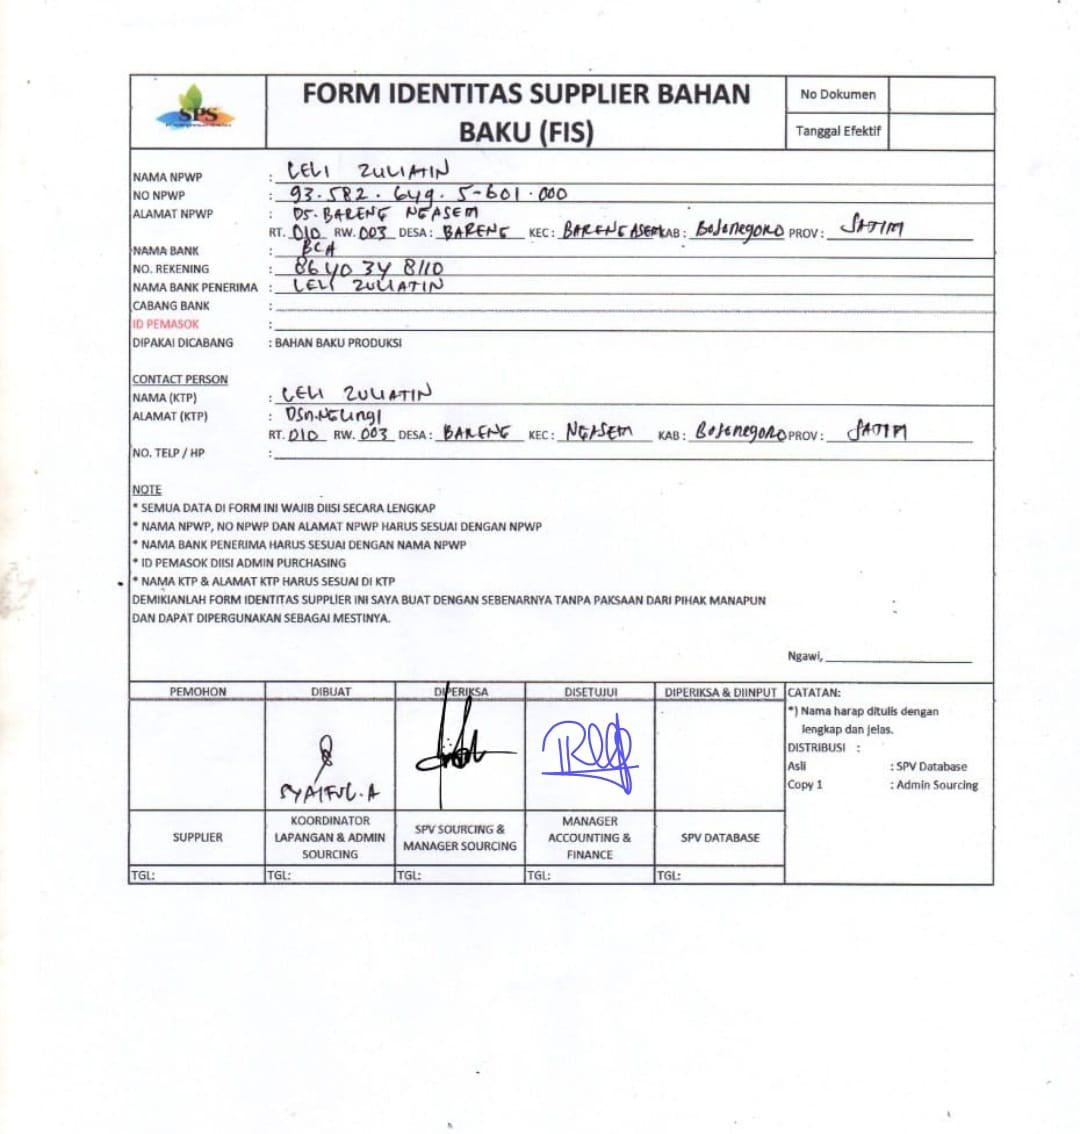 SPS
FORM IDENTITAS SUPPLIER BAHAN
BAKU (FIS)
No Dokumen
Tanggal Efektif
NAMA NPWP : LELI ZULIATIN
NO NPWP : 93.582.649.5-601.000
ALAMAT NPWP : DS. BARENG NGASEM
RT. 010 RW. 003 DESA : BARENG KEC : BARENG ASEM KAB : Bojonegoro PROV : JATIM
NAMA BANK : BCA
NO. REKENING : 8640 34 8110
NAMA BANK PENERIMA : LELI ZULIATIN
CABANG BANK :
ID PEMASOK :
DIPAKAI DICABANG : BAHAN BAKU PRODUKSI
CONTACT PERSON
NAMA (KTP) : LELI ZULIATIN
ALAMAT (KTP) : DSn. NGLingI
RT. 010 RW. 003 DESA : BARENG KEC : NGASEM KAB : Bojonegoro PROV : JATIM
NO. TELP / HP :
NOTE
* SEMUA DATA DI FORM INI WAJIB DIISI SECARA LENGKAP
* NAMA NPWP, NO NPWP DAN ALAMAT NPWP HARUS SESUAI DENGAN NPWP
* NAMA BANK PENERIMA HARUS SESUAI DENGAN NAMA NPWP
* ID PEMASOK DIISI ADMIN PURCHASING
* NAMA KTP & ALAMAT KTP HARUS SESUAI DI KTP
DEMIKIANLAH FORM IDENTITAS SUPPLIER INI SAYA BUAT DENGAN SEBENARNYA TANPA PAKSAAN DARI PIHAK MANAPUN
DAN DAPAT DIPERGUNAKAN SEBAGAI MESTINYA.
Ngawi,
PEMOHON DIBUAT DIPERIKSA DISETUJUI DIPERIKSA & DIINPUT
SYAIFUL.A
SUPPLIER
KOORDINATOR
LAPANGAN & ADMIN
SOURCING
SPV SOURCING &
MANAGER SOURCING
MANAGER
ACCOUNTING &
FINANCE
SPV DATABASE
TGL: TGL: TGL: TGL: TGL:
CATATAN:
*) Nama harap ditulis dengan
lengkap dan jelas.
DISTRIBUSI :
Asli : SPV Database
Copy 1 : Admin Sourcing